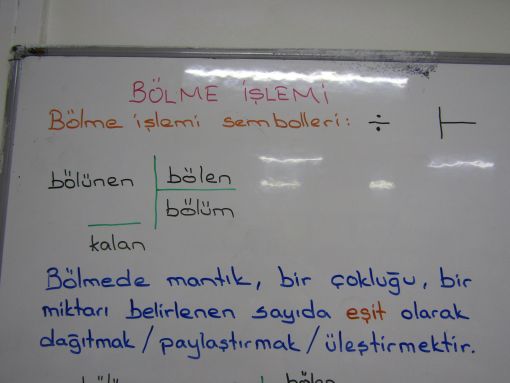 BÖLME İŞLEMİ
Bölme işlemi sembolleri: ÷ ⊢
bölünen bölen
bölüm
kalan
Bölmede mantık, bir çokluğu, bir
miktarı belirlenen sayıda eşit olarak
dağıtmak/paylaştırmak/üleştirmektir.
bölen